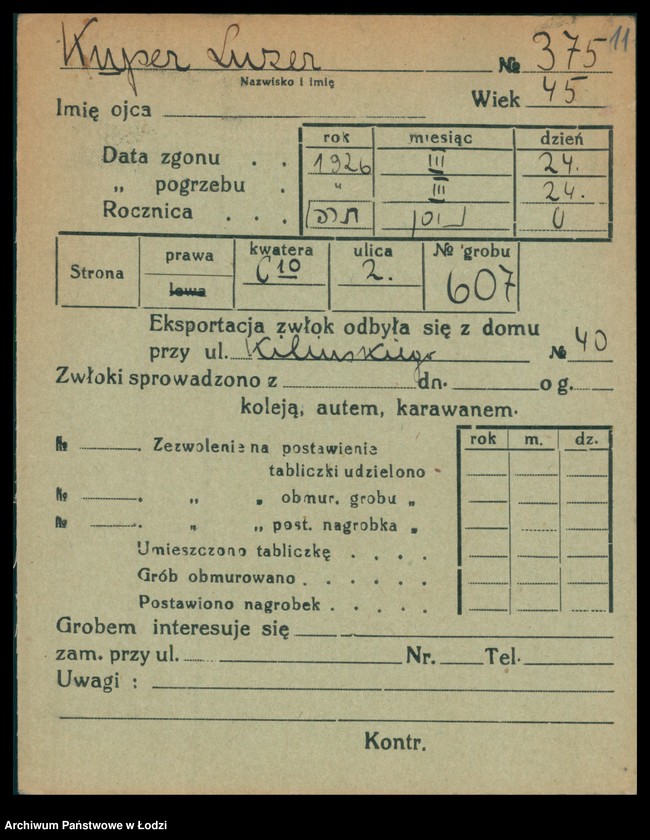 Kuper Luzer № 375 11
Nazwisko i imię
Imię ojca Wiek 45
rok miesiąc dzień
Data zgonu . . 1926 III 24.
„ pogrzebu . " III 24.
Rocznica . . . ניסן
Strona prawa kwatera ulica № grobu
lewa C 10 2. 607
Eksportacja zwłok odbyła się z domu
przy ul. Kilińskiego № 40
Zwłoki sprowadzono z dn. o g.
koleją, autem, karawanem.
№ . Zezwolenie na postawienie rok m. dz.
tabliczki udzielono
№ . „ „ obmur. grobu „
№ . „ „ post. nagrobka „
Umieszczono tabliczkę . . . .
Grób obmurowano . . . . . .
Postawiono nagrobek . . . . .
Grobem interesuje się
zam. przy ul. Nr. Tel.
Uwagi :
Kontr.
Archiwum Państwowe w Łodzi